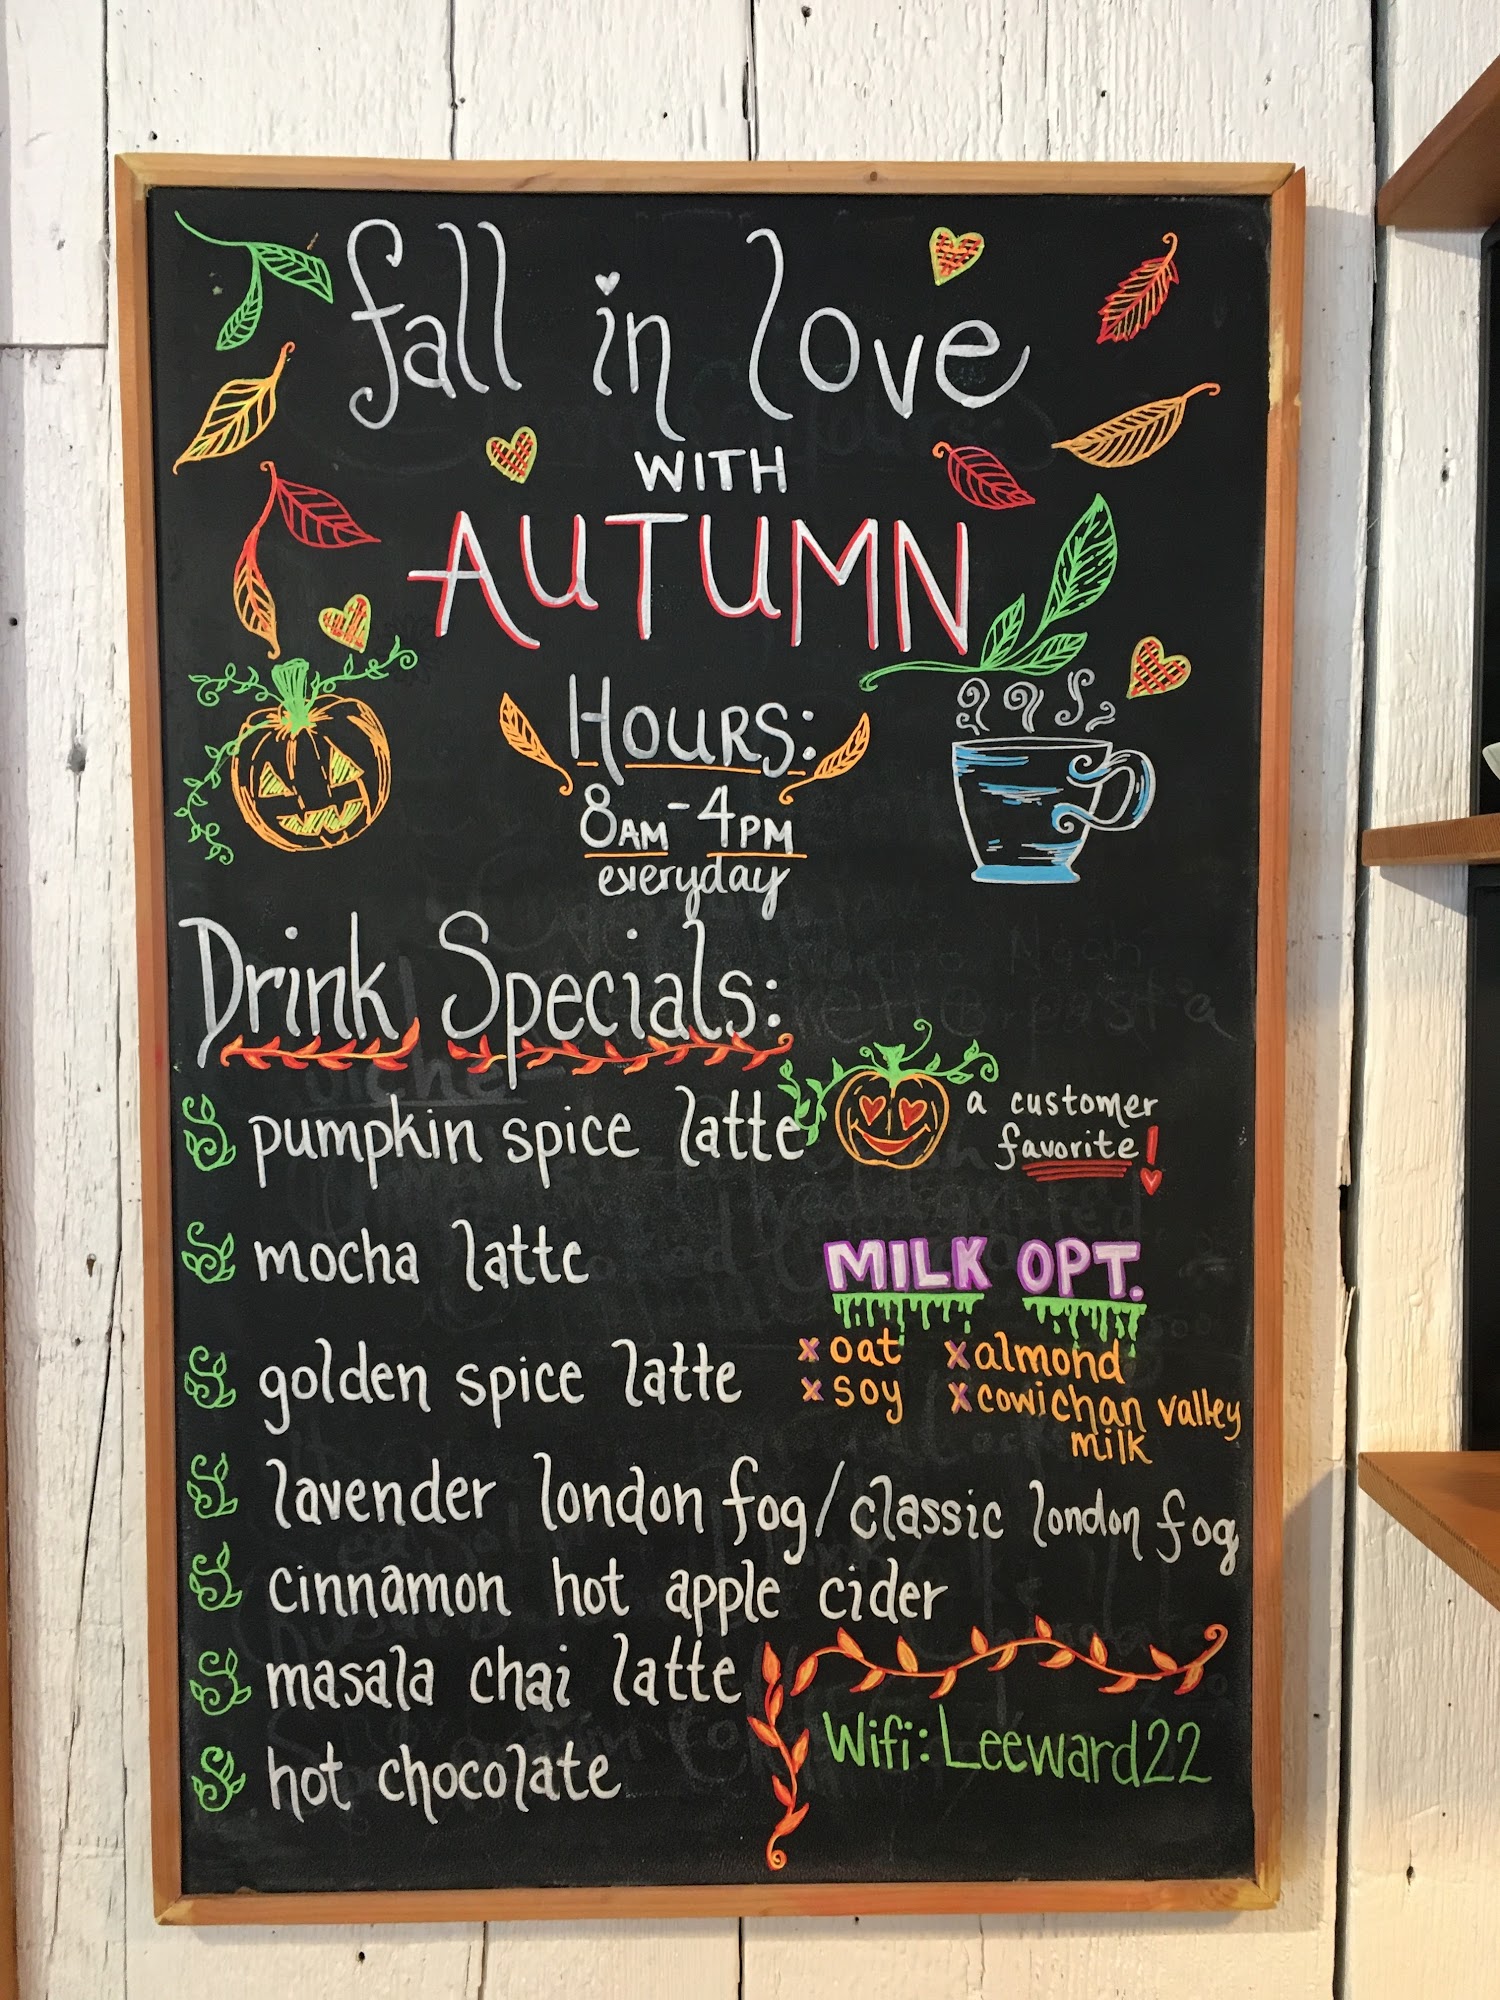 fall in love
WITH
AUTUMN
HOURS:
8AM-4PM
everyday
Drink Specials:
pumpkin spice latte
a customer
favorite!
mocha latte
MILK OPT.
x oat x almond
x soy x cowichan valley
milk
golden spice latte
lavender london fog/classic london fog
cinnamon hot apple cider
masala chai latte
hot chocolate
Wifi: Leeward22